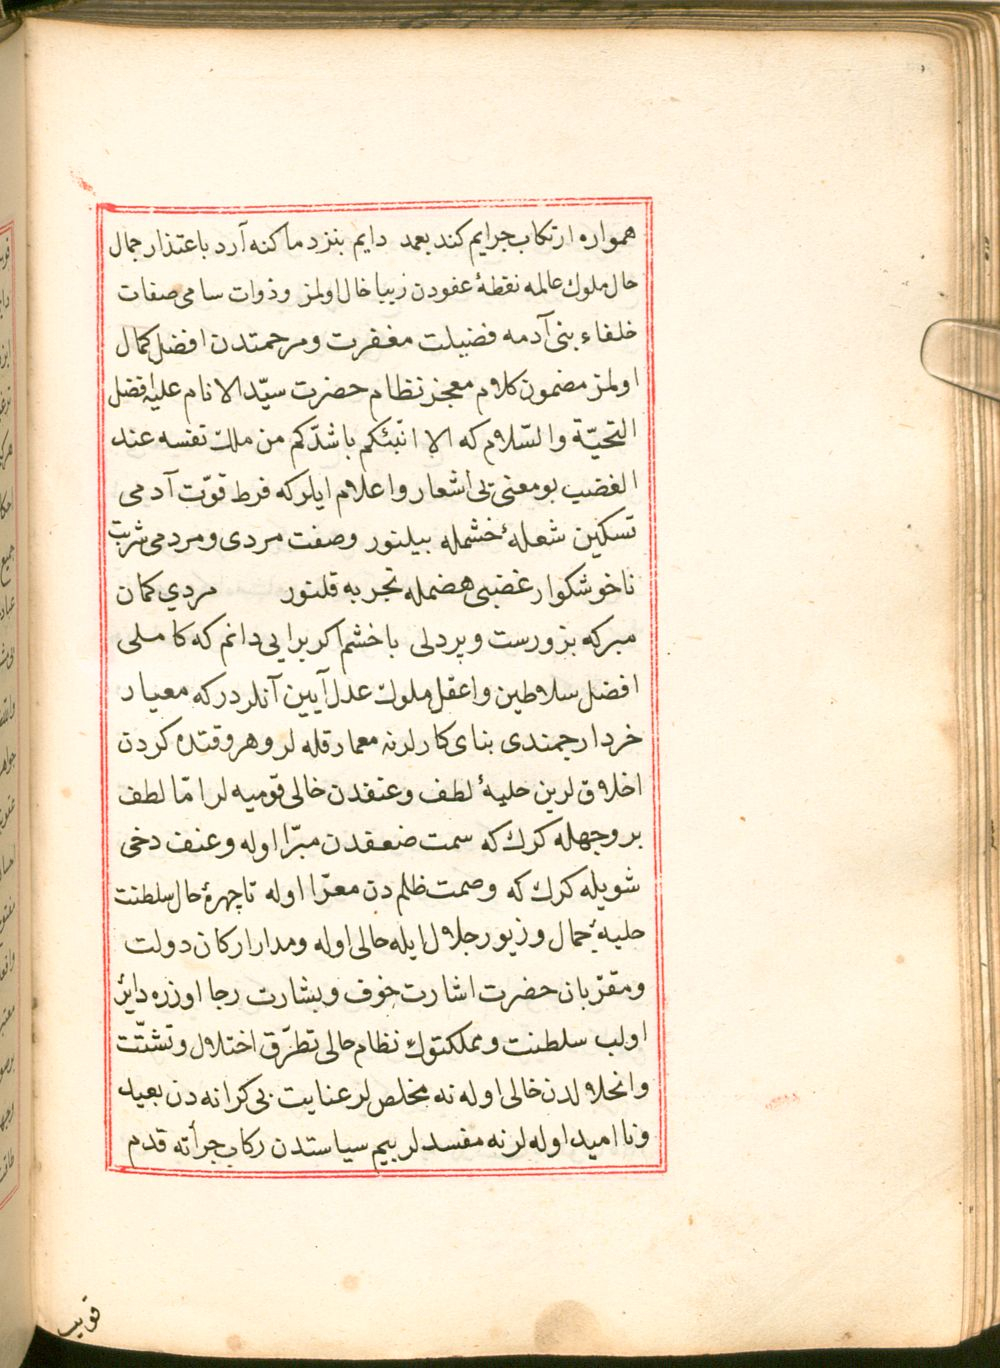 همواره ارتكاب جرايم كند بعمد دايم بنزد ما كنه آرد باعتذار جمال
حال ملوك عالمه نقطهٔ عفودن زيبا خال اولمز و ذوات سامى صفات
خلفاء بنى آدمه فضيلت مغفرت و مرحمتدن افضل كمال
اولمز مضمون كلام معجز نظام حضرت سيّد الانام عليه افضل
التحيّة والسّلام كه الا انبئكم باشدّكم من ملك نفسه عند
الغضب بو معنى يى اشعار و اعلام ايلر كه فرط قوّت آدمى
تسكين شعلهٔ خشمله بيلنور و صفت مردى و مردمى شربت
ناخوشكوار غضبى هضمله تجربه قلنور مردي كمان
مبر كه بزورست و پردلى باخشم اكر برايى دانم كه كاملى
افضل سلاطين و اعقل ملوك عدل آيين آنلردر كه معيار
خرد ارجمندى بناى كارلرنه معمار قله لر و هر وقتده كردن
اخلاق لرين حليهٔ لطف و عنفدن خالى قوميه لر امّا لطف
بر وجهله كرك كه سمت ضعفدن مبرّا اوله و عنف دخى
شويله كرك كه وصمت ظلم دن معرّا اوله تا چهرهٔ حال سلطنت
حليهٔ جمال و زيور جلال ايله حالى اوله و مدار اركان دولت
و مقرّبان حضرت اشارت خوف و بشارت رجا اوزره دايرٔ
اولب سلطنت و مملكتوك نظام حالى تطرّق اختلال و تشتّت
و انحلالدن خالى اوله نه مخلصلر عنايت بى كرانه دن بعيد
و نا اميد اوله لر نه مفسدلر بيم سياستدن ركاب جرأته قدم
قويب